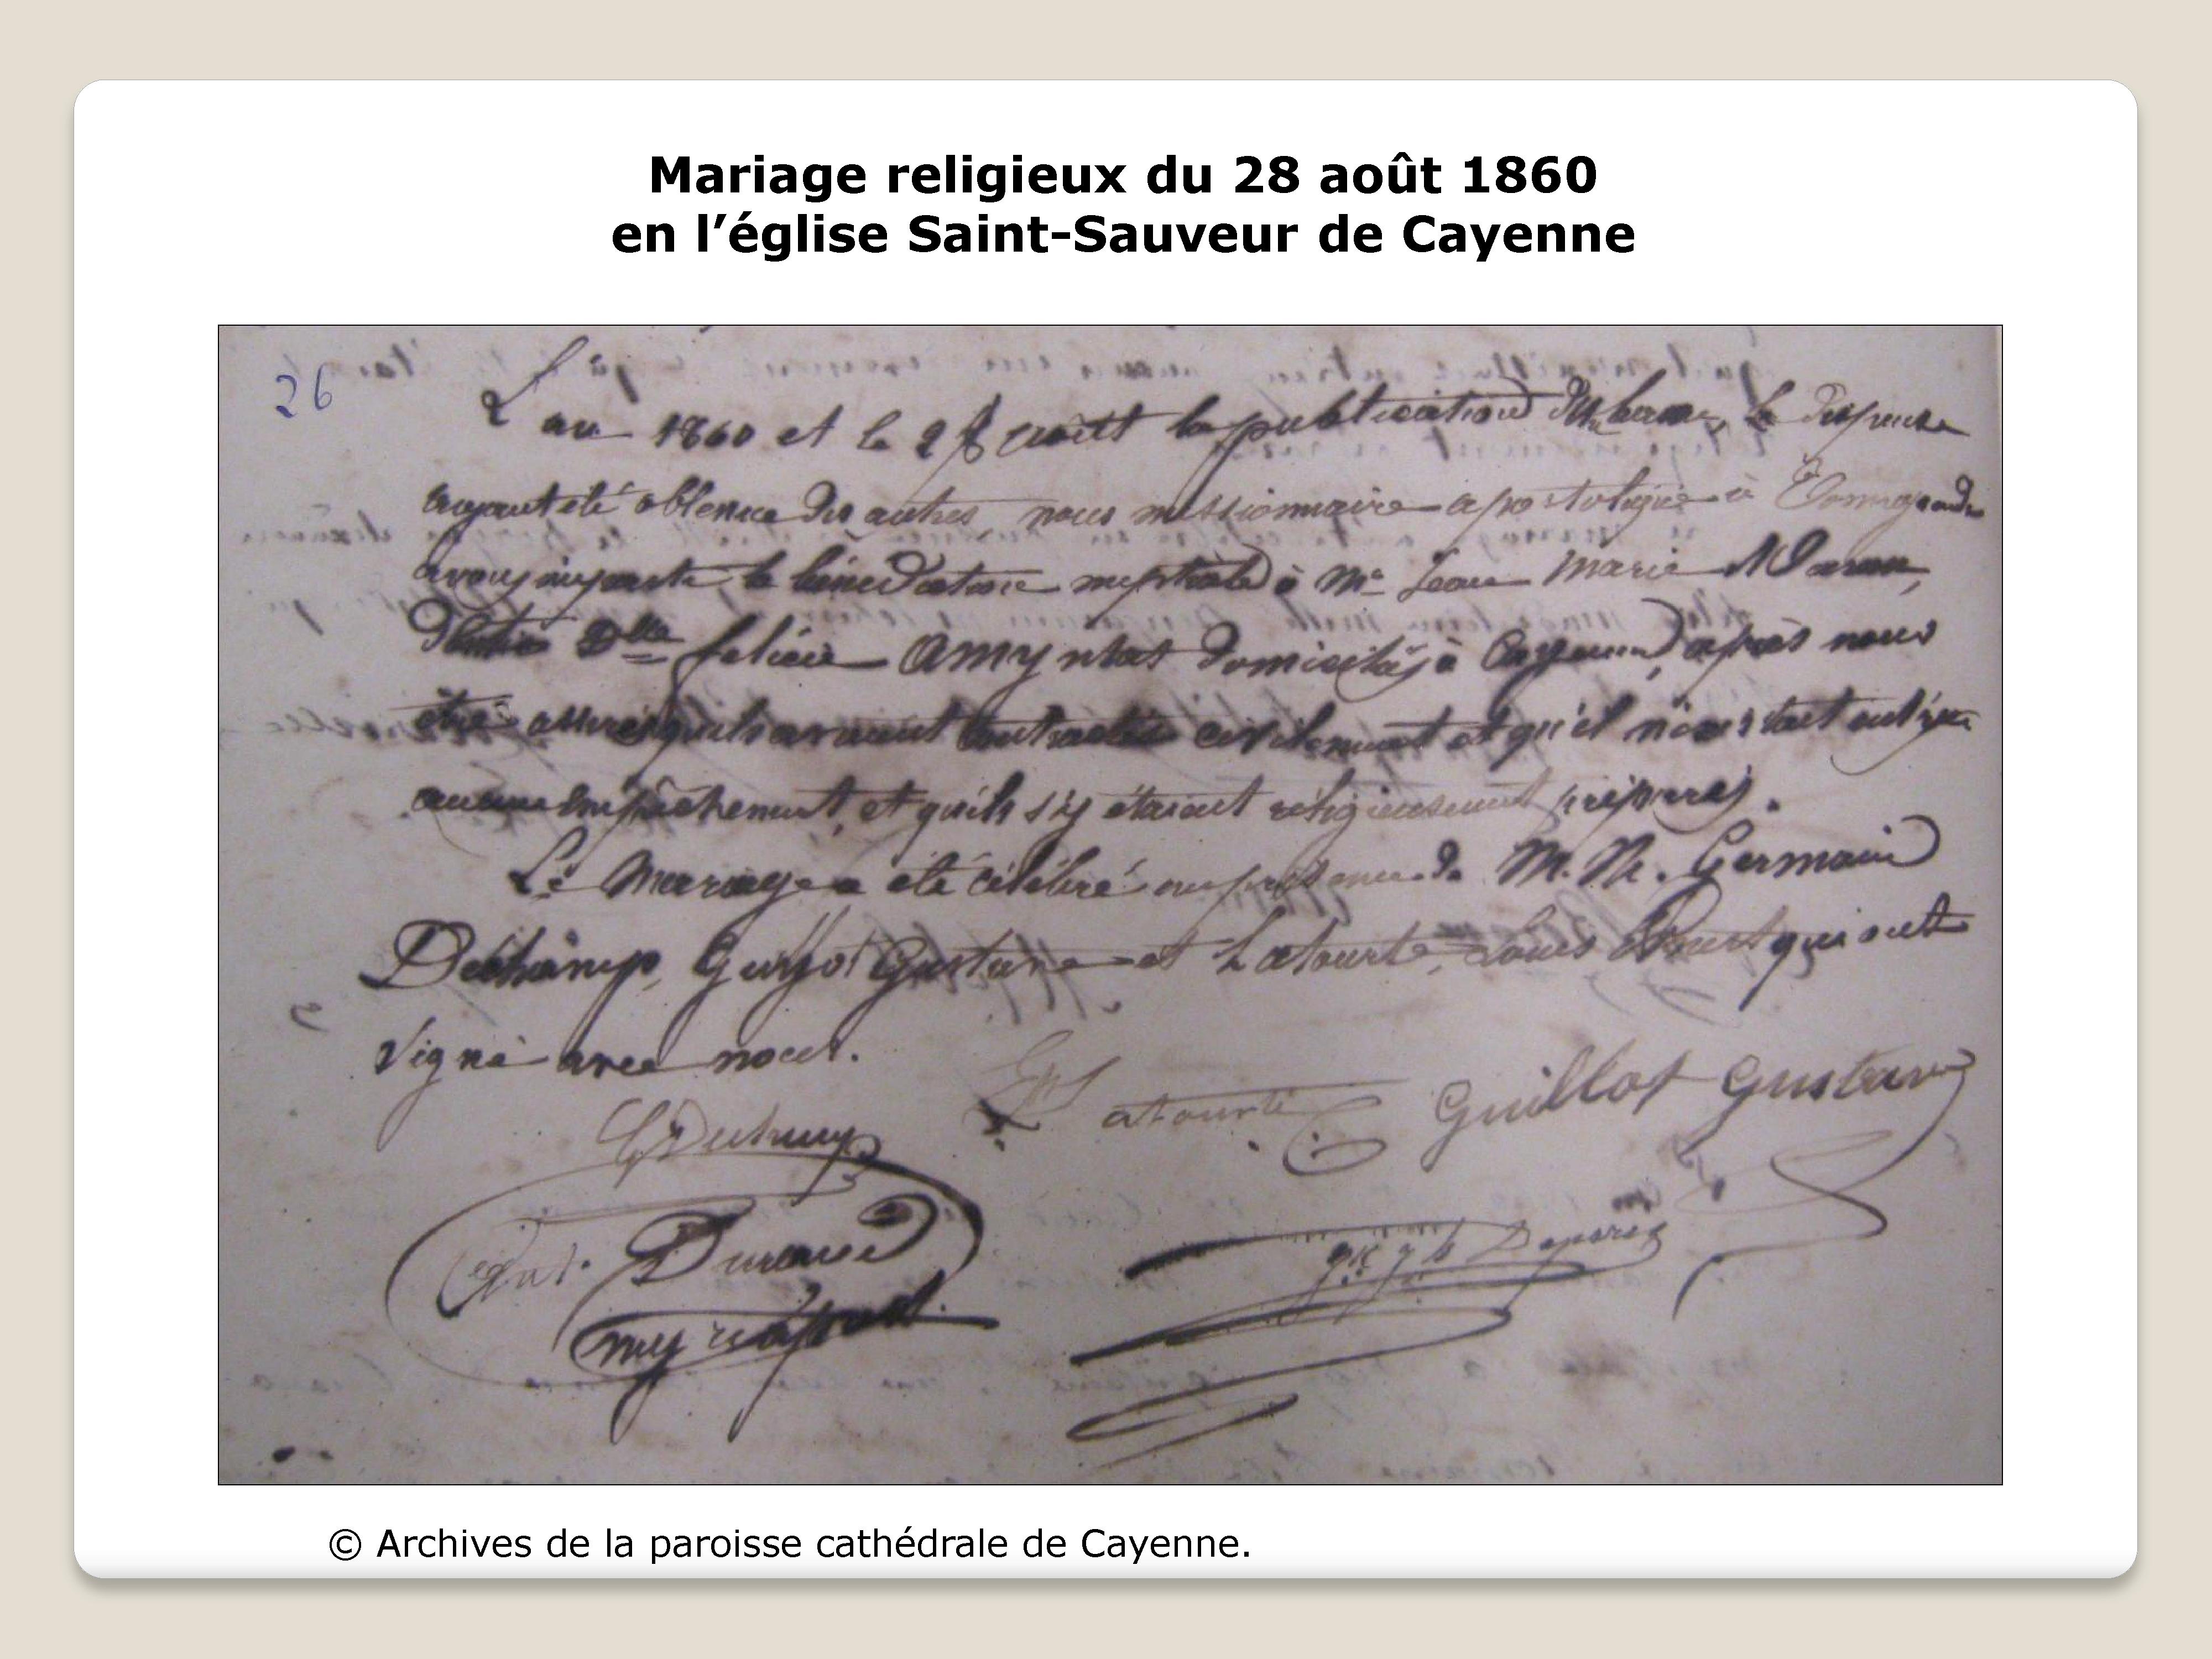 Mariage religieux du 28 août 1860
en l’église Saint-Sauveur de Cayenne
26
L'an 1860 et le 28 août la publication d'un ban, la dispense
ayant été obtenue des autres, nous missionnaire apostolique à
avons imparti la bénédiction nuptiale à Mr Jean Marie
Dlle felicie Amynthas domiciliés à Cayenne, après nous
être assurés qu'ils avaient contracté civilement et qu'il n'existait entr'eux
aucun empêchement, et qu'ils s'y étaient réligieusement préparés.
Le mariage a été célébré en présence de M.M. Germain
Duchamp, Guyot Gustave et Latourte, Louis qui ont
signé avec nous.
Latourte Guillot Gustave
Durand
miss apost.
© Archives de la paroisse cathédrale de Cayenne.